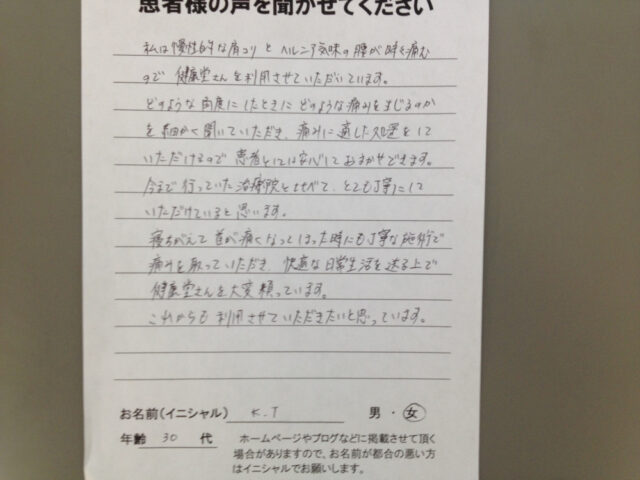 患者様の声を聞かせてください
私は慢性的な肩コリとヘルニア気味の腰が時々痛む
ので健康堂さんを利用させていただいています。
どのような角度にしたときにどのような痛みを生じるのか
を細かく聞いていただき、痛みに適した処置をして
いただけるので患者としては安心しておまかせできます。
今まで行っていた治療院と比べて、とても丁寧にして
いただけていると思います。
寝ちがえて首が痛くなってしまった時にも丁寧な施術で
痛みを取っていただき、快適な日常生活を送る上で
健康堂さんを大変頼っています。
これからも利用させていただきたいと思っています。
お名前(イニシャル) K.T 男・女
年齢 30 代 ホームページやブログなどに掲載させて頂く
場合がありますので、お名前が都合の悪い方
はイニシャルでお願いします。